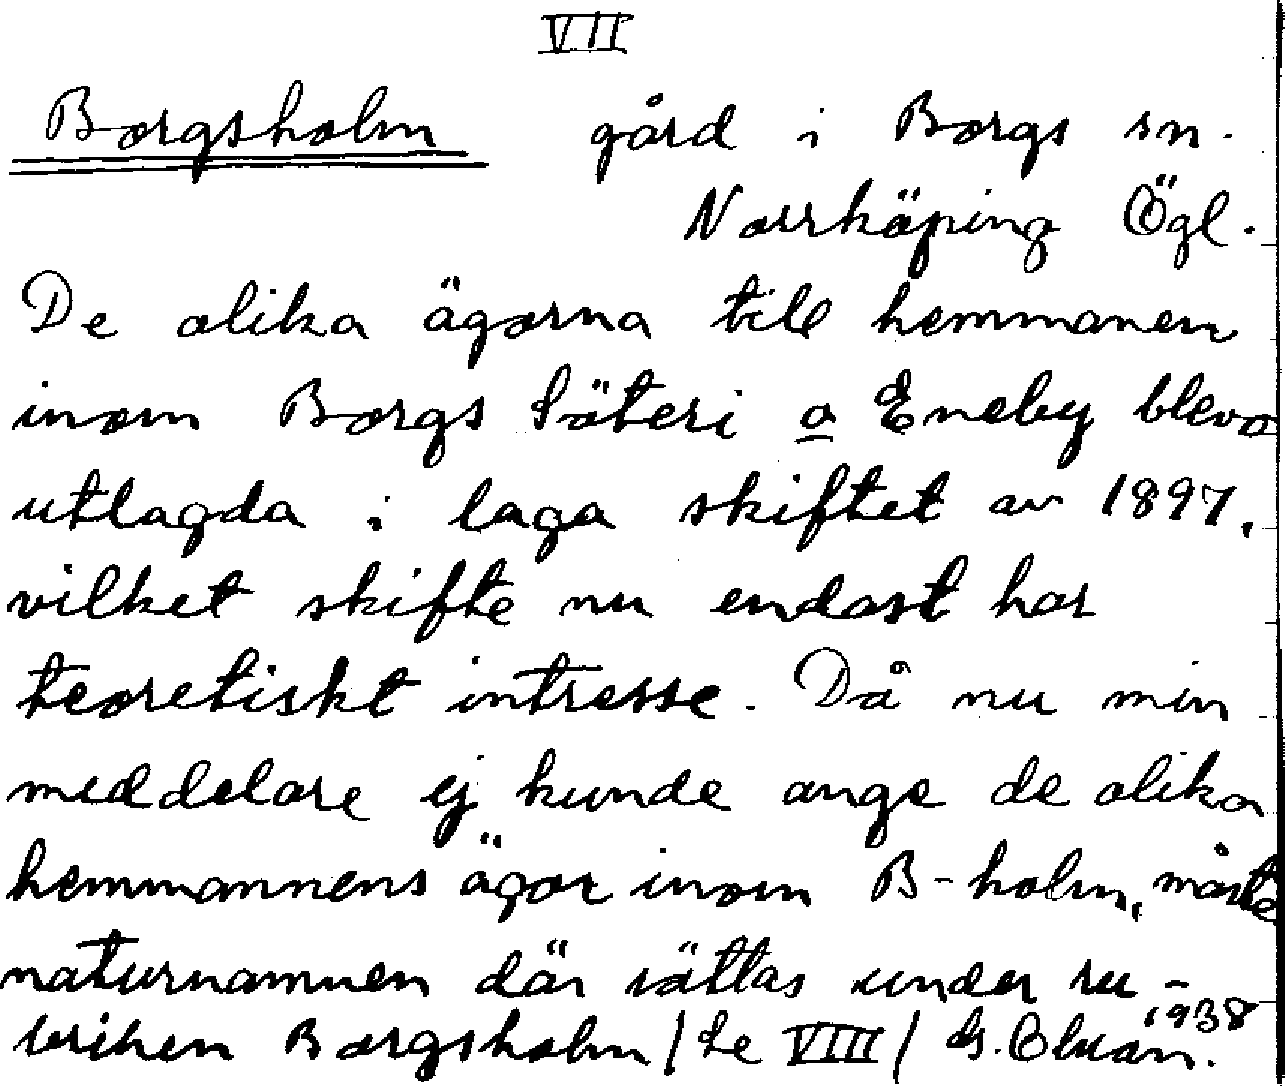 VII
Borgsholm gård i Borgs sn.
Norrköping Ögl.
De olika ägorna till hemmanen
inom Borgs Säteri o Eneby blevo
utlagda i laga skiftet av 1897,
vilket skifte nu endast har
teoretiskt intresse. Då nu min
meddelare ej kunde ange de olika
hemmannens ägor inom B-holm, måste
naturnamnen där sättas under ru-
briken Borgsholm /Se VIII/ 1938